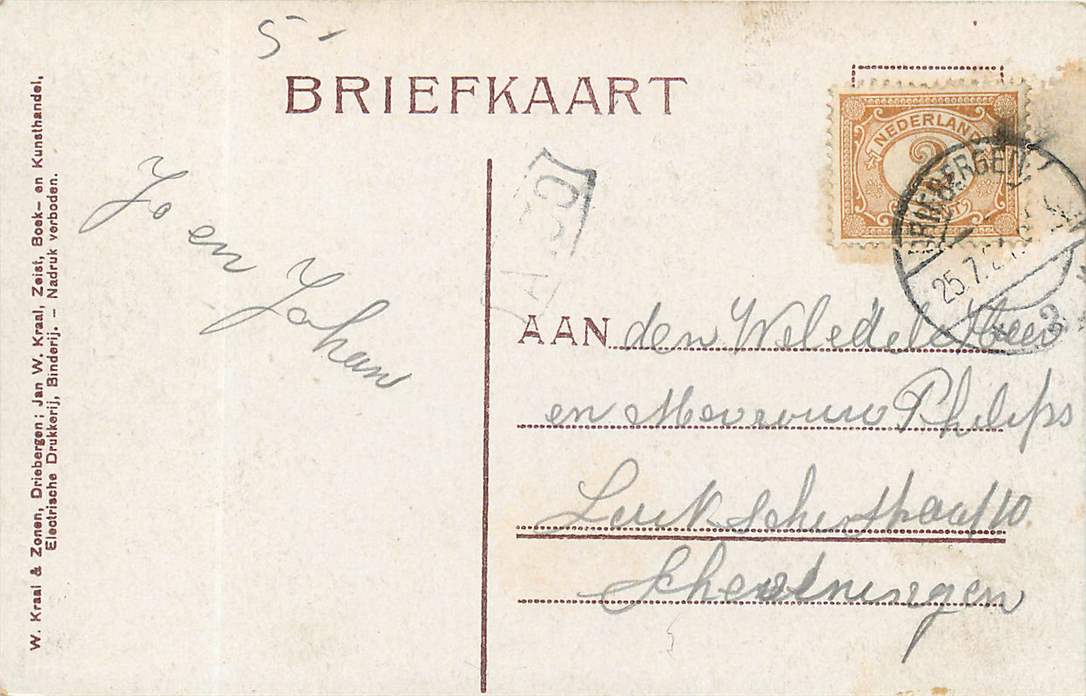 5-
BRIEFKAART
NEDERLAND
2
DRIEBERGEN
25.7.2
2
Jo en
Johan
AAN den WelEdelHeer
en Mevrouw Philips
10
Scheveningen
W. Kraal & Zonen, Driebergen; Jan W. Kraal, Zeist, Boek- en Kunsthandel,
Electrische Drukkerij, Binderij. – Nadruk verboden.